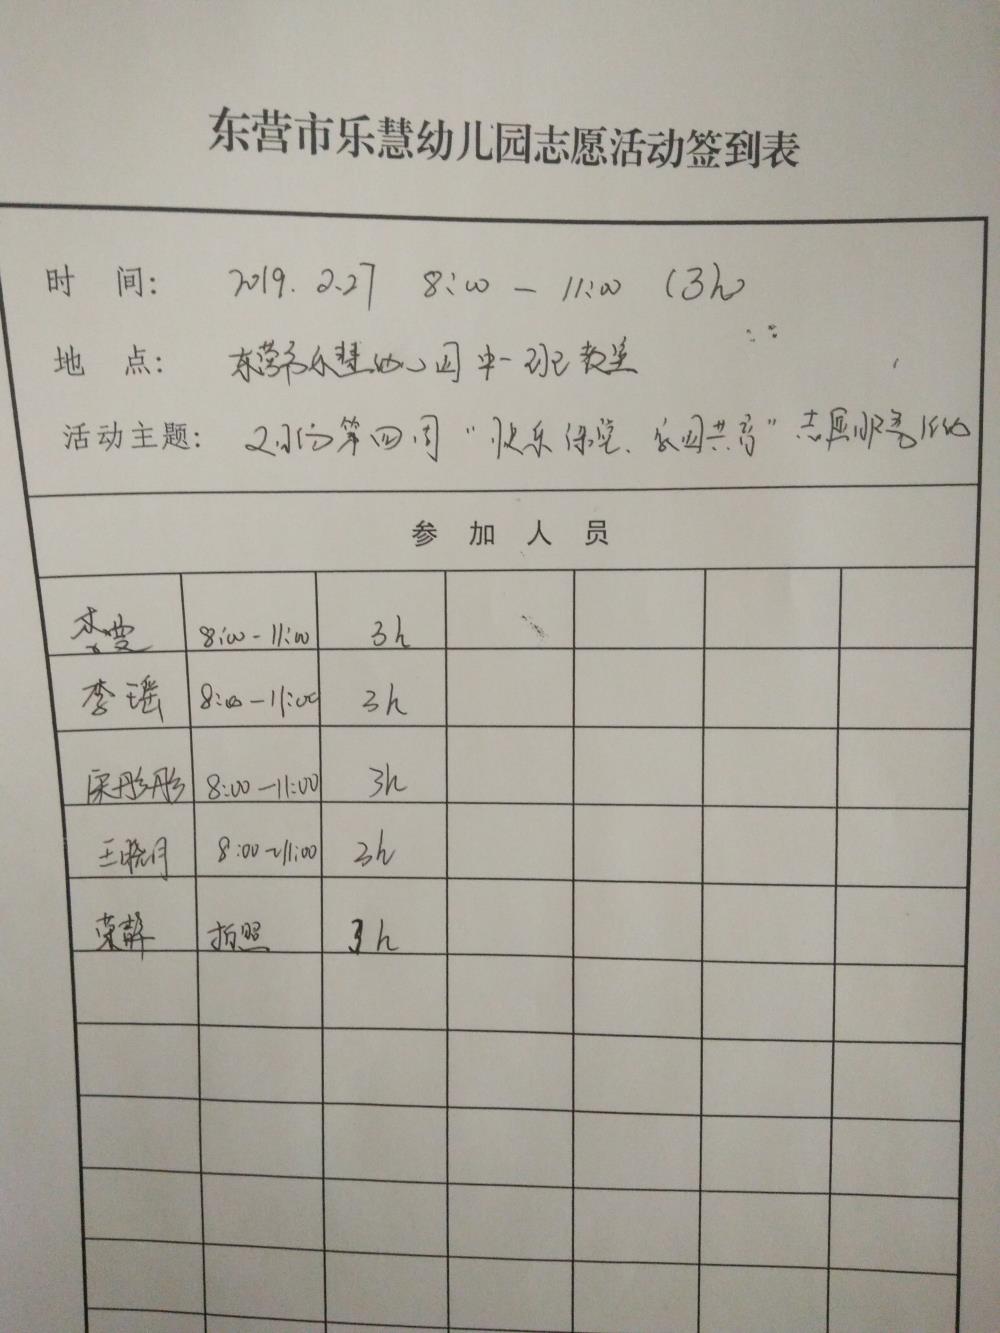 东营市乐慧幼儿园志愿活动签到表
时 间： 2019.2.27 8:00 — 11:00 （3h）
地 点： 东营市乐慧幼儿园中一班教室
活动主题： 2月份第四周“快乐课堂、家园共育”志愿服务活动
参 加 人 员
李雯 8:00-11:00 3h
李瑶 8:00-11:00 3h
彤彤 8:00-11:00 3h
王晓月 8:00-11:00 3h
荣静 拍照 3h